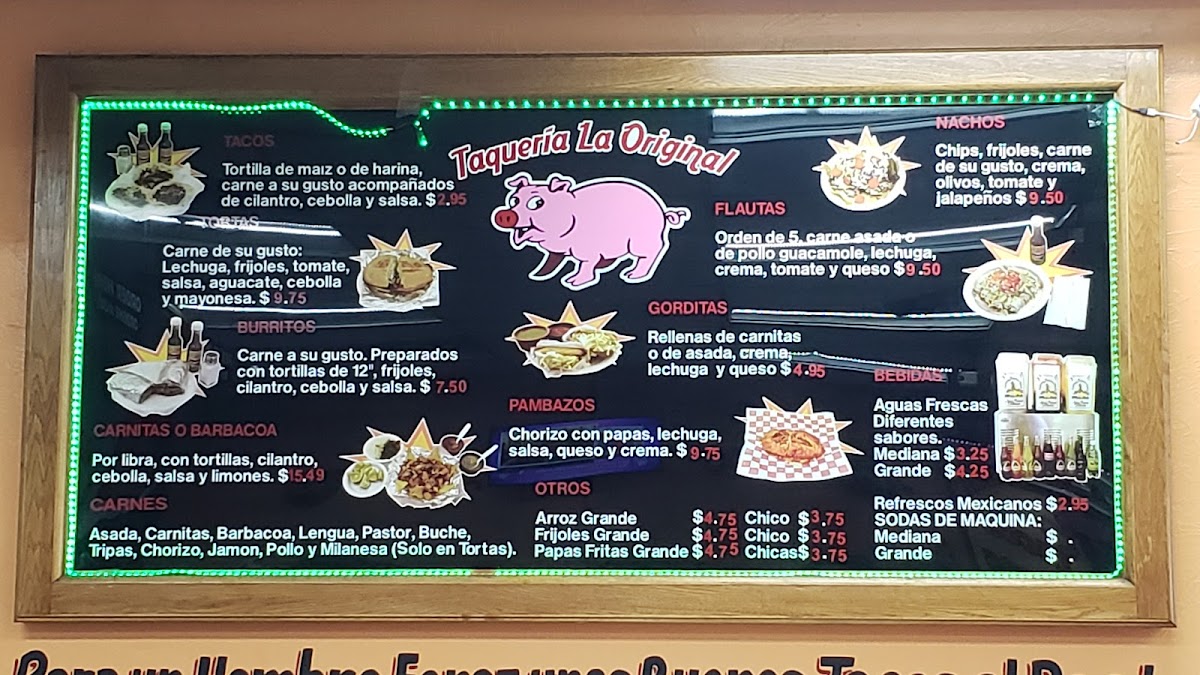 Taquería La Original
TACOS
Tortilla de maiz o de harina,
carne a su gusto acompañados
de cilantro, cebolla y salsa. $2.95
TORTAS
Carne de su gusto:
Lechuga, frijoles, tomate,
salsa, aguacate, cebolla
y mayonesa. $ 9.75
BURRITOS
Carne a su gusto. Preparados
con tortillas de 12", frijoles,
cilantro, cebolla y salsa. $ 7.50
CARNITAS O BARBACOA
Por libra, con tortillas, cilantro,
cebolla, salsa y limones. $15.49
CARNES
Asada, Carnitas, Barbacoa, Lengua, Pastor, Buche,
Tripas, Chorizo, Jamon, Pollo y Milanesa (Solo en Tortas).
FLAUTAS
Orden de 5, carne asada o
de pollo guacamole, lechuga,
crema, tomate y queso $9.50
GORDITAS
Rellenas de carnitas
o de asada, crema,
lechuga y queso $4.95
PAMBAZOS
Chorizo con papas, lechuga,
salsa, queso y crema. $ 9.75
OTROS
Arroz Grande $4.75 Chico $3.75
Frijoles Grande $4.75 Chico $3.75
Papas Fritas Grande $4.75 Chicas$3.75
NACHOS
Chips, frijoles, carne
de su gusto, crema,
olivos, tomate y
jalapeños $9.50
BEBIDAS
Aguas Frescas
Diferentes
sabores.
Mediana $3.25
Grande $4.25
Refrescos Mexicanos $2.95
SODAS DE MAQUINA:
Mediana $ .
Grande $ .